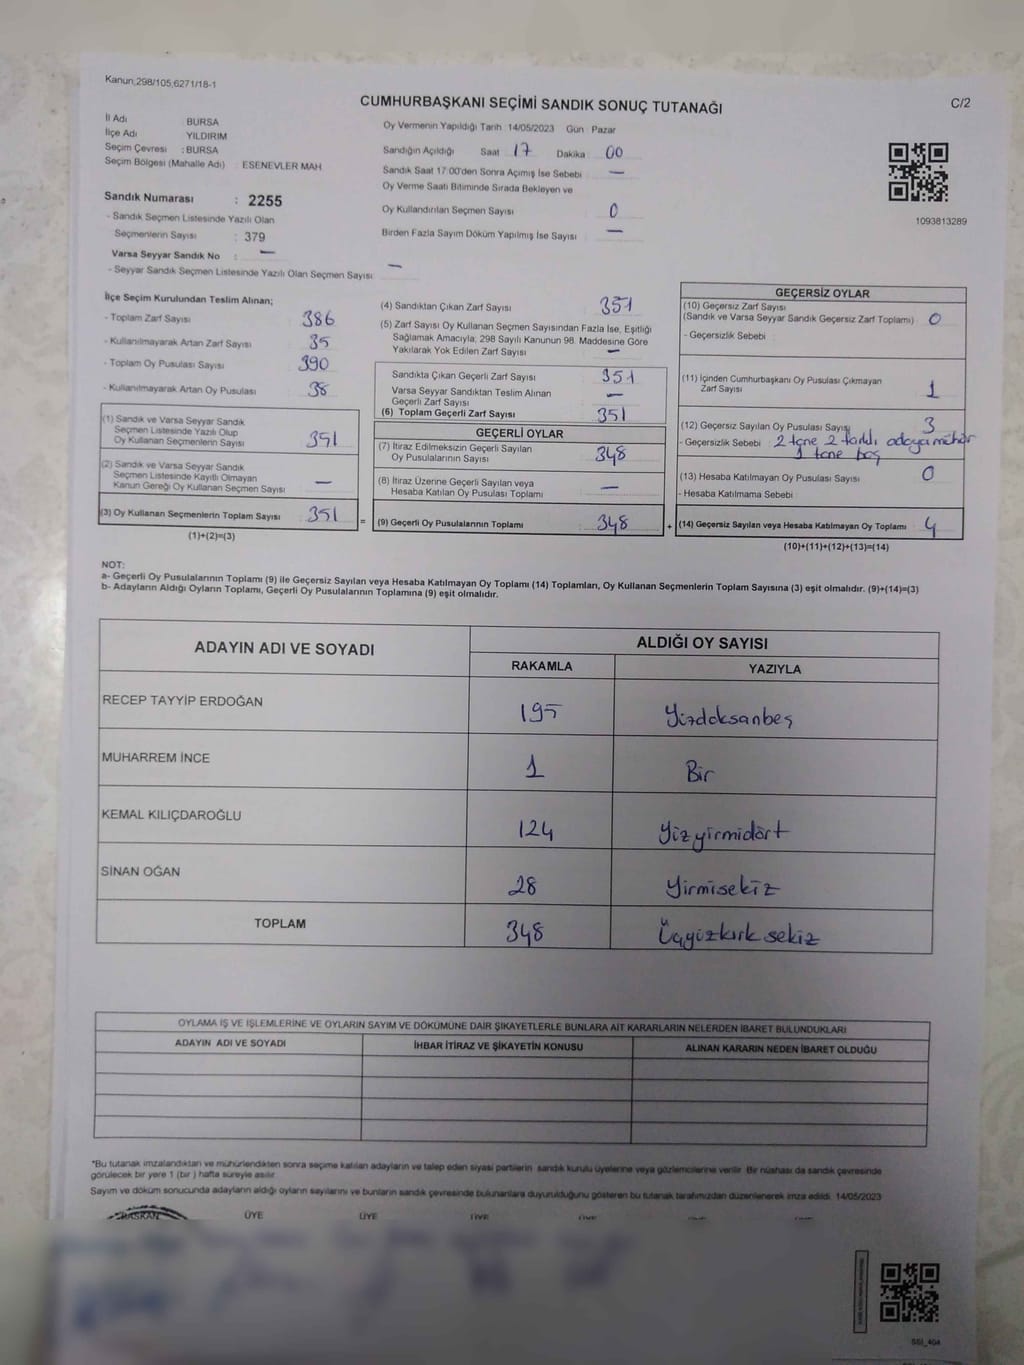 Kanun,298/105,6271/18-1
CUMHURBAŞKANI SEÇİMİ SANDIK SONUÇ TUTANAĞI
C/2
İl Adı BURSA
İlçe Adı YILDIRIM
Seçim Çevresi : BURSA
Seçim Bölgesi (Mahalle Adı) ESENEVLER MAH
Oy Vermenin Yapıldığı Tarih 14/05/2023 Gün Pazar
Sandığın Açıldığı Saat 17 Dakika 00
Sandık Saat 17:00'den Sonra Açımış İse Sebebi —
Oy Verme Saati Bitiminde Sırada Bekleyen ve
Oy Kullandırılan Seçmen Sayısı 0
Birden Fazla Sayım Döküm Yapılmış İse Sayısı —
1093813289
Sandık Numarası : 2255
- Sandık Seçmen Listesinde Yazılı Olan
Seçmenlerin Sayısı : 379
Varsa Seyyar Sandık No : —
- Seyyar Sandık Seçmen Listesinde Yazılı Olan Seçmen Sayısı —
İlçe Seçim Kurulundan Teslim Alınan;
- Toplam Zarf Sayısı 386
- Kullanılmayarak Artan Zarf Sayısı 35
- Toplam Oy Pusulası Sayısı 390
- Kullanılmayarak Artan Oy Pusulası 38
(1) Sandık ve Varsa Seyyar Sandık
Seçmen Listesinde Yazılı Olup
Oy Kullanan Seçmenlerin Sayısı 351
(2) Sandık ve Varsa Seyyar Sandık
Seçmen Listesinde Kayıtlı Olmayan
Kanun Gereği Oy Kullanan Seçmen Sayısı —
(3) Oy Kullanan Seçmenlerin Toplam Sayısı 351
(1)+(2)=(3)
=
(4) Sandıktan Çıkan Zarf Sayısı 351
(5) Zarf Sayısı Oy Kullanan Seçmen Sayısından Fazla İse, Eşitliği
Sağlamak Amacıyla, 298 Sayılı Kanunun 98. Maddesine Göre
Yakılarak Yok Edilen Zarf Sayısı —
Sandıkta Çıkan Geçerli Zarf Sayısı 351
Varsa Seyyar Sandıktan Teslim Alınan
Geçerli Zarf Sayısı —
(6) Toplam Geçerli Zarf Sayısı 351
GEÇERLİ OYLAR
(7) İtiraz Edilmeksizin Geçerli Sayılan
Oy Pusulalarının Sayısı 348
(8) İtiraz Üzerine Geçerli Sayılan veya
Hesaba Katılan Oy Pusulası Toplamı —
(9) Geçerli Oy Pusulalarının Toplamı 348
+
GEÇERSİZ OYLAR
(10) Geçersiz Zarf Sayısı
(Sandık ve Varsa Seyyar Sandık Geçersiz Zarf Toplamı) 0
- Geçersizlik Sebebi
(11) İçinden Cumhurbaşkanı Oy Pusulası Çıkmayan
Zarf Sayısı 1
(12) Geçersiz Sayılan Oy Pusulası Sayısı 3
- Geçersizlik Sebebi 2 tane 2 farklı adaya mühür
1 tane boş
(13) Hesaba Katılmayan Oy Pusulası Sayısı 0
- Hesaba Katılmama Sebebi
(14) Geçersiz Sayılan veya Hesaba Katılmayan Oy Toplamı 4
(10)+(11)+(12)+(13)=(14)
NOT:
a- Geçerli Oy Pusulalarının Toplamı (9) ile Geçersiz Sayılan veya Hesaba Katılmayan Oy Toplamı (14) Toplamları, Oy Kullanan Seçmenlerin Toplam Sayısına (3) eşit olmalıdır. (9)+(14)=(3)
b- Adayların Aldığı Oyların Toplamı, Geçerli Oy Pusulalarının Toplamına (9) eşit olmalıdır.
ADAYIN ADI VE SOYADI
ALDIĞI OY SAYISI
RAKAMLA YAZIYLA
RECEP TAYYİP ERDOĞAN 195 Yüzdoksanbeş
MUHARREM İNCE 1 Bir
KEMAL KILIÇDAROĞLU 124 Yüzyirmidört
SİNAN OĞAN 28 Yirmisekiz
TOPLAM 348 Üçyüzkırk sekiz
OYLAMA İŞ VE İŞLEMLERİNE VE OYLARIN SAYIM VE DÖKÜMÜNE DAİR ŞİKAYETLERLE BUNLARA AİT KARARLARIN NELERDEN İBARET BULUNDUKLARI
ADAYIN ADI VE SOYADI İHBAR İTİRAZ VE ŞİKAYETİN KONUSU ALINAN KARARIN NEDEN İBARET OLDUĞU
*Bu tutanak imzalandıktan ve mühürlendikten sonra seçime katılan adayların ve talep eden siyasi partilerin sandık kurulu üyelerine veya gözlemcilerine verilir. Bir nüshası da sandık çevresinde
görülecek bir yere 1 (bir ) hafta süreyle asılır.
Sayım ve döküm sonucunda adayların aldığı oyların sayılarını ve bunların sandık çevresinde bulunanlara duyurulduğunu gösteren bu tutanak tarafımızdan düzenlenerek imza edildi. 14/05/2023
BAŞKAN ÜYE ÜYE ÜYE ÜYE